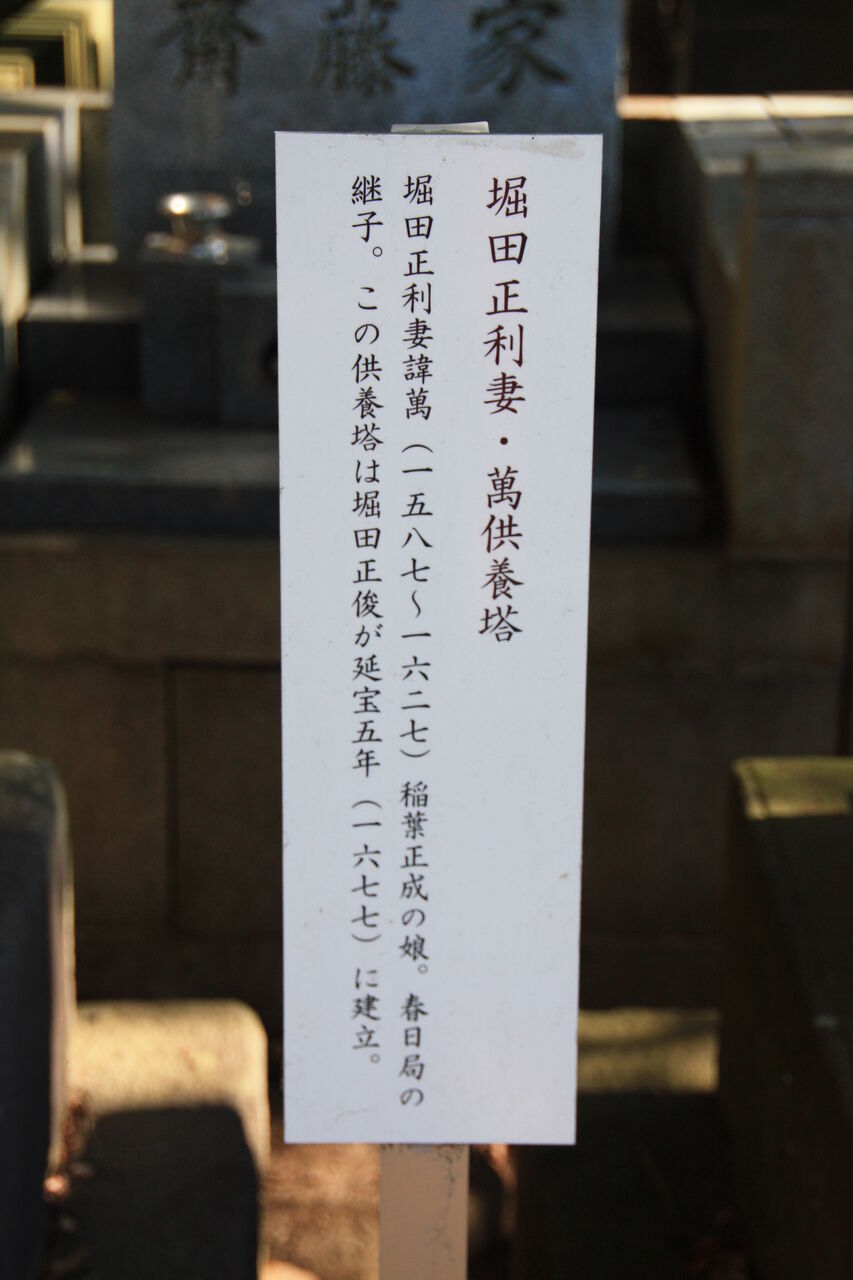 齋藤家
堀田正利妻・萬供養塔
堀田正利妻諱萬（一五八七〜一六二七）稲葉正成の娘。春日局の
継子。この供養塔は堀田正俊が延宝五年（一六七七）に建立。